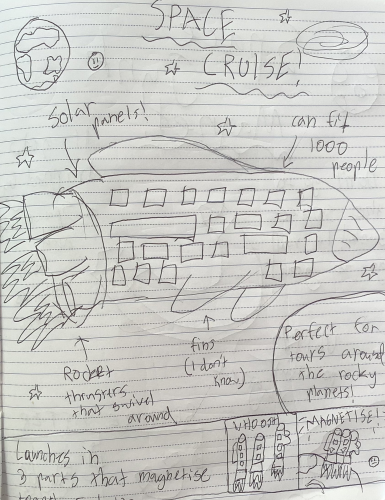 SPACE
CRUISE!
Solar
panels!
can fit
1000
people
Rocket
thrusters
that swivel
around
fins
(I don't
know)
Perfect for
tours around
the rocky
planets!
Launches in
3 parts that magnetise
WHOOSH
MAGNETISE!